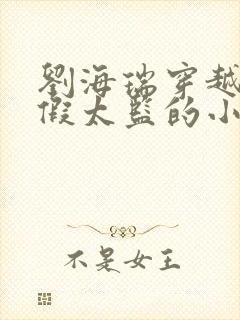 劉海瑞穿越
假太監的小
不是女王